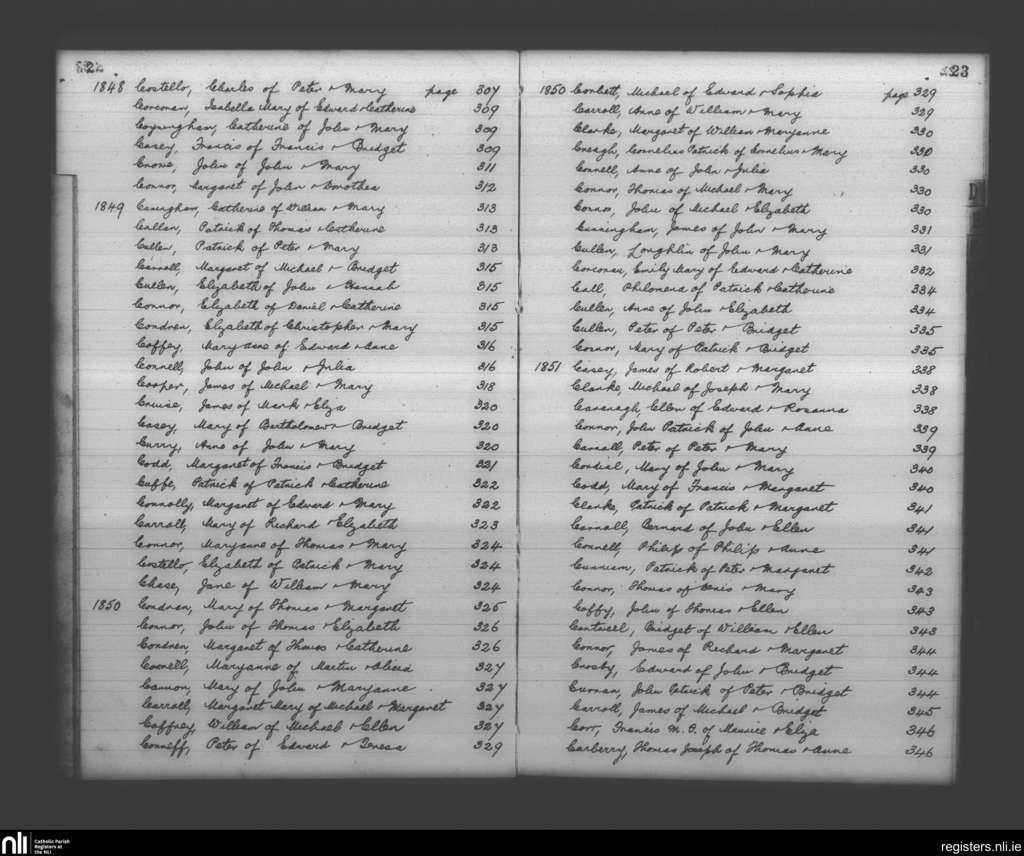 22
1848 Costello, Charles of Peter & Mary page 307
Corconan, Isabella Mary of Edward & Catherine 309
Conyngham, Catherine of John & Mary 309
Casey, Francis of Francis & Bridget 309
Crowe, John of John & Mary 311
Connor, Margaret of John & Dorothea 312
1849 Cunningham, Catherine of William & Mary 313
Callan, Patrick of Thomas & Catherine 313
Cullen, Patrick of Peter & Mary 313
Carroll, Margaret of Michael & Bridget 315
Cullen, Elizabeth of John & Hannah 315
Connor, Elizabeth of Daniel & Catherine 315
Condren, Elizabeth of Christopher & Mary 315
Coffey, Mary Anne of Edward & Anne 316
Connell, John of John & Julia 316
Cooper, James of Michael & Mary 318
Cruise, James of Mark & Eliza 320
Casey, Mary of Bartholomew & Bridget 320
Curry, Anne of John & Mary 320
Codd, Margaret of Francis & Bridget 321
Cuffe, Patrick of Patrick & Catherine 322
Connolly, Margaret of Edward & Mary 322
Carroll, Mary of Richard & Elizabeth 323
Connor, Maryanne of Thomas & Mary 324
Costello, Elizabeth of Patrick & Mary 324
Chase, Jane of William & Mary 324
1850 Condren, Mary of Thomas & Margaret 325
Connor, John of Thomas & Elizabeth 326
Condren, Margaret of Thomas & Catherine 326
Connell, Maryanne of Martin & Alicia 327
Cannon, Mary of John & Maryanne 327
Carroll, Margaret Mary of Michael & Margaret 327
Caffrey, William of Michael & Ellen 327
Conneff, Peter of Edward & Teresa 329
23
1850 Corbett, Michael of Edward & Sophia page 329
Carroll, Anne of William & Mary 329
Clarke, Margaret of William & Maryanne 330
Creagh, Cornelius Patrick of Cornelius & Mary 330
Connell, Anne of John & Julia 330
Connor, Thomas of Michael & Mary 330
Connor, John of Michael & Elizabeth 330
Cunningham, James of John & Mary 331
Cullen, Loughlin of John & Mary 331
Corconan, Emily Mary of Edward & Catherine 332
Call, Philomena of Patrick & Catherine 334
Cullen, Anne of John & Elizabeth 334
Cullen, Peter of Peter & Bridget 335
Connor, Mary of Patrick & Bridget 335
1851 Casey, James of Robert & Margaret 338
Clarke, Michael of Joseph & Mary 338
Cavanagh, Ellen of Edward & Rosanna 338
Connor, John Patrick of John & Anne 339
Carroll, Peter of Peter & Mary 339
Cordial, Mary of John & Mary 340
Codd, Mary of Francis & Margaret 340
Clarke, Patrick of Patrick & Margaret 341
Connell, Bernard of John & Ellen 341
Connell, Philip of Philip & Anne 341
Patrick of Peter & Margaret 342
Connor, Thomas of Denis & Mary 343
Coffy, John of Thomas & Ellen 343
Cantwell, Bridget of William & Ellen 343
Connor, James of Richard & Margaret 344
Crosby, Edward of John & Bridget 344
Curran, John Patrick of Peter & Bridget 344
Carroll, James of Michael & Bridget 345
Corr, Francis M. of Maurice & Eliza 346
Carberry, Thomas Joseph of Thomas & Anne 346
D
nli Catholic Parish
Registers at
the NLI
registers.nli.ie